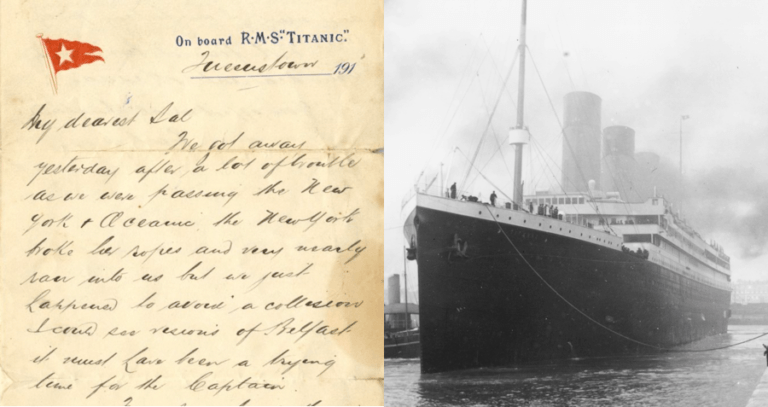 On board R·M·S·"TITANIC."
Queenstown 191
My dearest Sal
We got away
yesterday after a lot of trouble
as we were passing the New
York & Oceanic the New York
broke her ropes and very nearly
ran into us but we just
happened to avoid a collision
I could see visions of Belfast
it must have been a trying
time for the Captain.